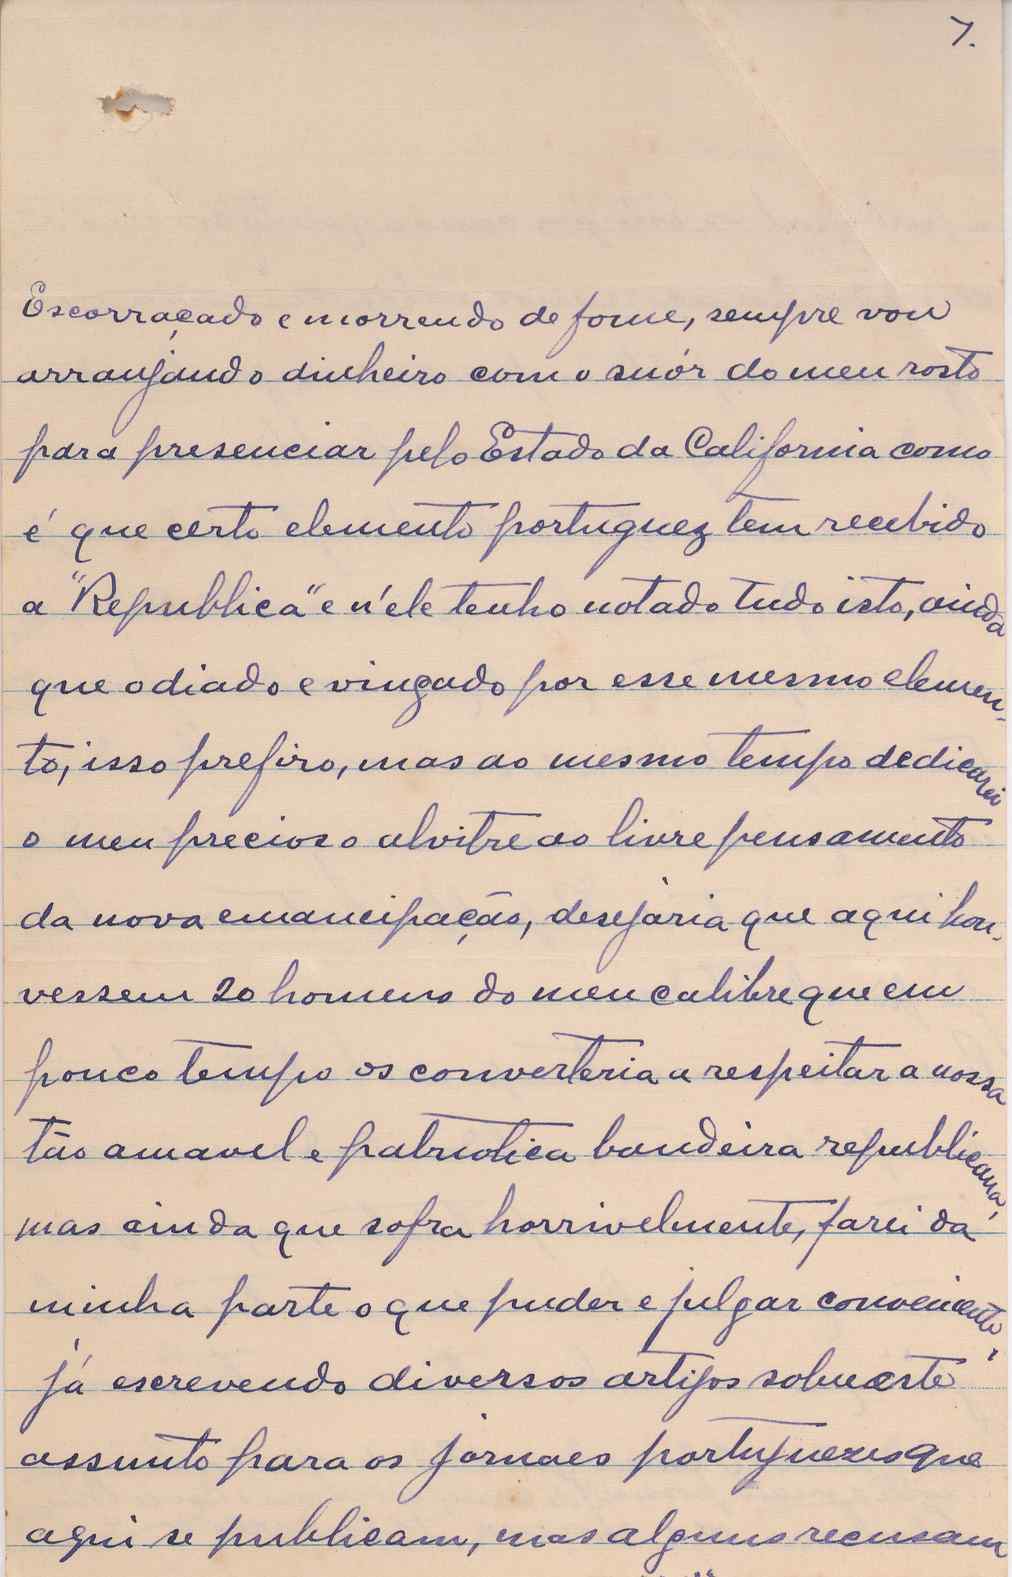 7.
Escorraçado e morrendo de fome, sempre vou
arranjando dinheiro com o suór do meu rosto
para presenciar pelo Estado da California como
é que certo elemento portuguez tem recebido
a "Republica" e n'ele tenho notado tudo isto, ainda
que odiado e vingado por esse mesmo elemen-
to, isso prefiro, mas ao mesmo tempo dedicarei
o meu precioso alvitre ao livre pensamento
da nova emancipação, desejaria que aqui hou-
vessem 20 homens do meu calibre que em
pouco tempo os converteria a respeitar a nossa
tão amavel e patriotica bandeira republicana,
mas ainda que sofra horrivelmente, farei da
minha parte o que puder e julgar conveniente,
já escrevendo diversos artigos sobre este
assunto para os jornaes portuguezes que
aqui se publicam, mas alguns recusam